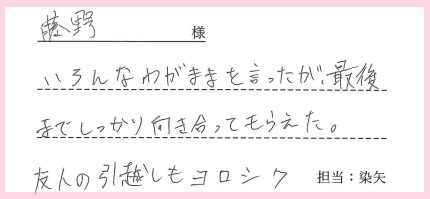 藤野 様
いろんなわがままを言ったが、最後
までしっかり向き合ってもらえた。
友人の引越しもヨロシク 担当:染矢